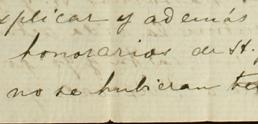 xplicar y además
honorarios de H.
no se hubieran te